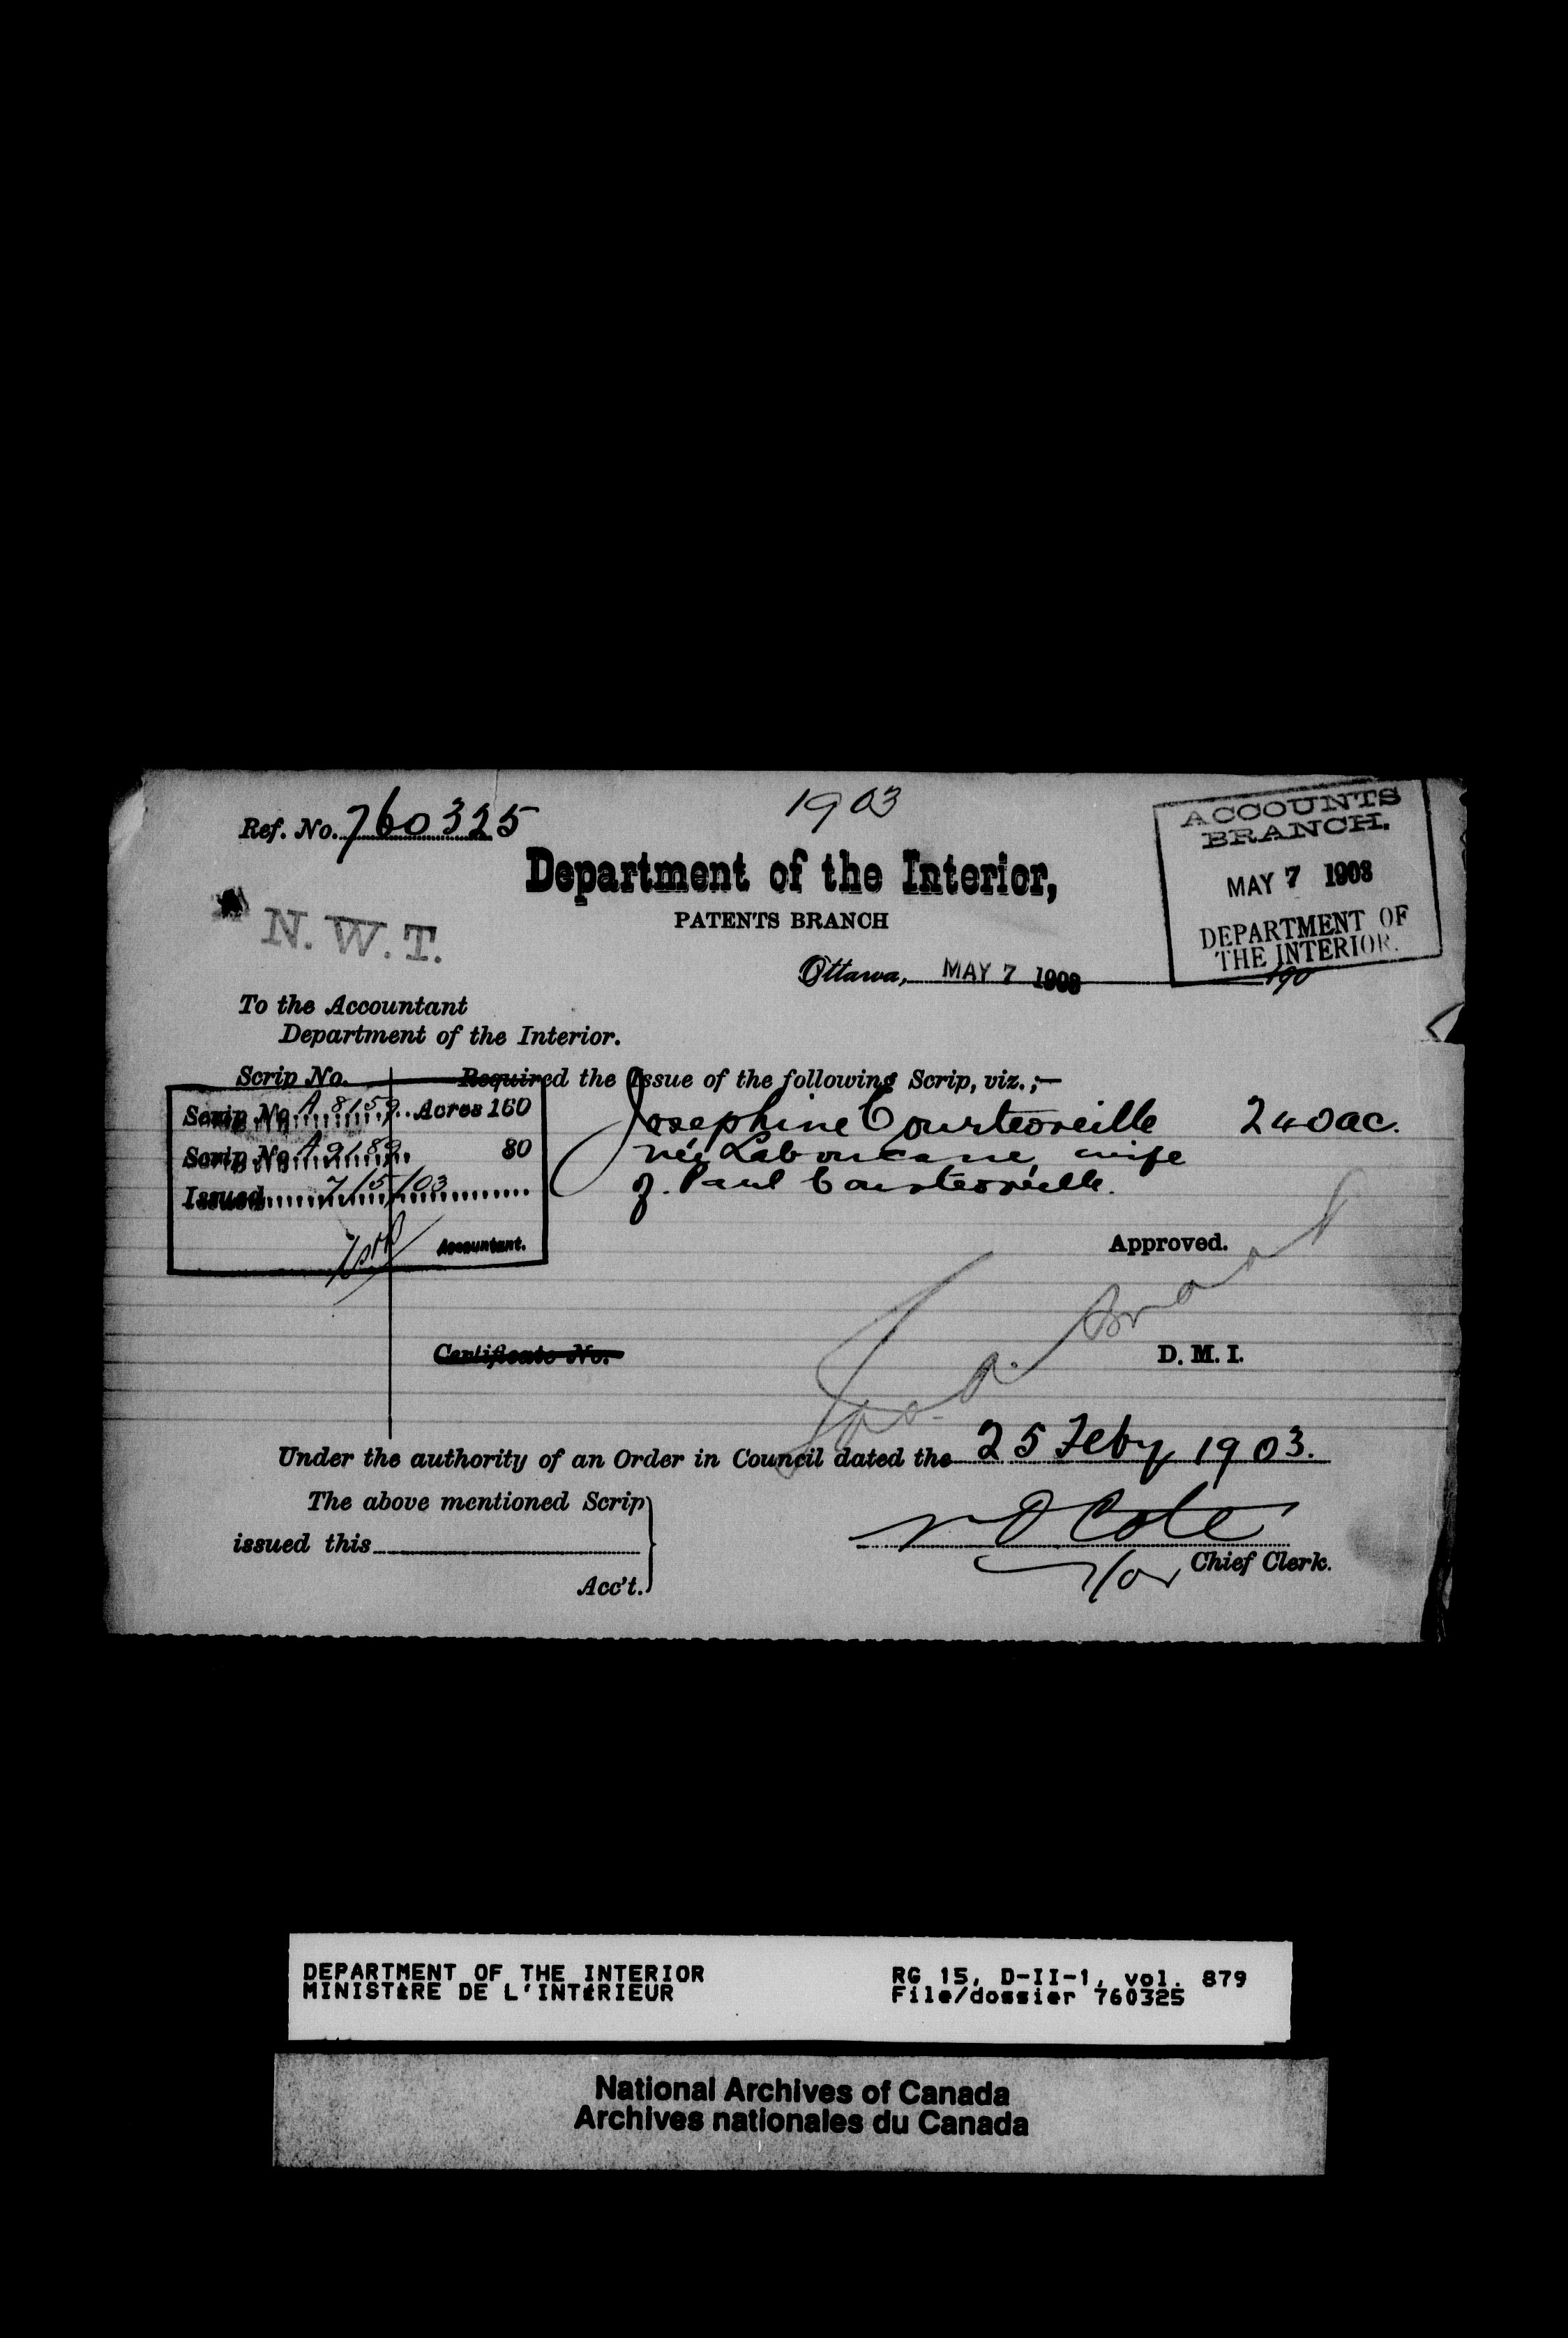 Ref. No. 760325
1903
ACCOUNTS
BRANCH.
MAY 7 1903
DEPARTMENT OF
THE INTERIOR.
Department of the Interior,
PATENTS BRANCH
N. W. T.
Ottawa, MAY 7 1903 190
To the Accountant
Department of the Interior.
Scrip No. Required the Issue of the following Scrip, viz.;—
Scrip No. A 8159 Acres 160
Scrip No. A 9189 80
Issued 7/5/03
Accountant.
Josephine Courteoreille 240 ac.
née Laboucane, wife
of Paul Courteoreille.
Approved.
Certificate No.
D. M. I.
Under the authority of an Order in Council dated the 25 Feby 1903.
The above mentioned Scrip
issued this
Acc't.
N O Cote
for Chief Clerk.
DEPARTMENT OF THE INTERIOR
MINISTÈRE DE L'INTÉRIEUR
RG 15, D-II-1, vol. 879
File/dossier 760325
National Archives of Canada
Archives nationales du Canada